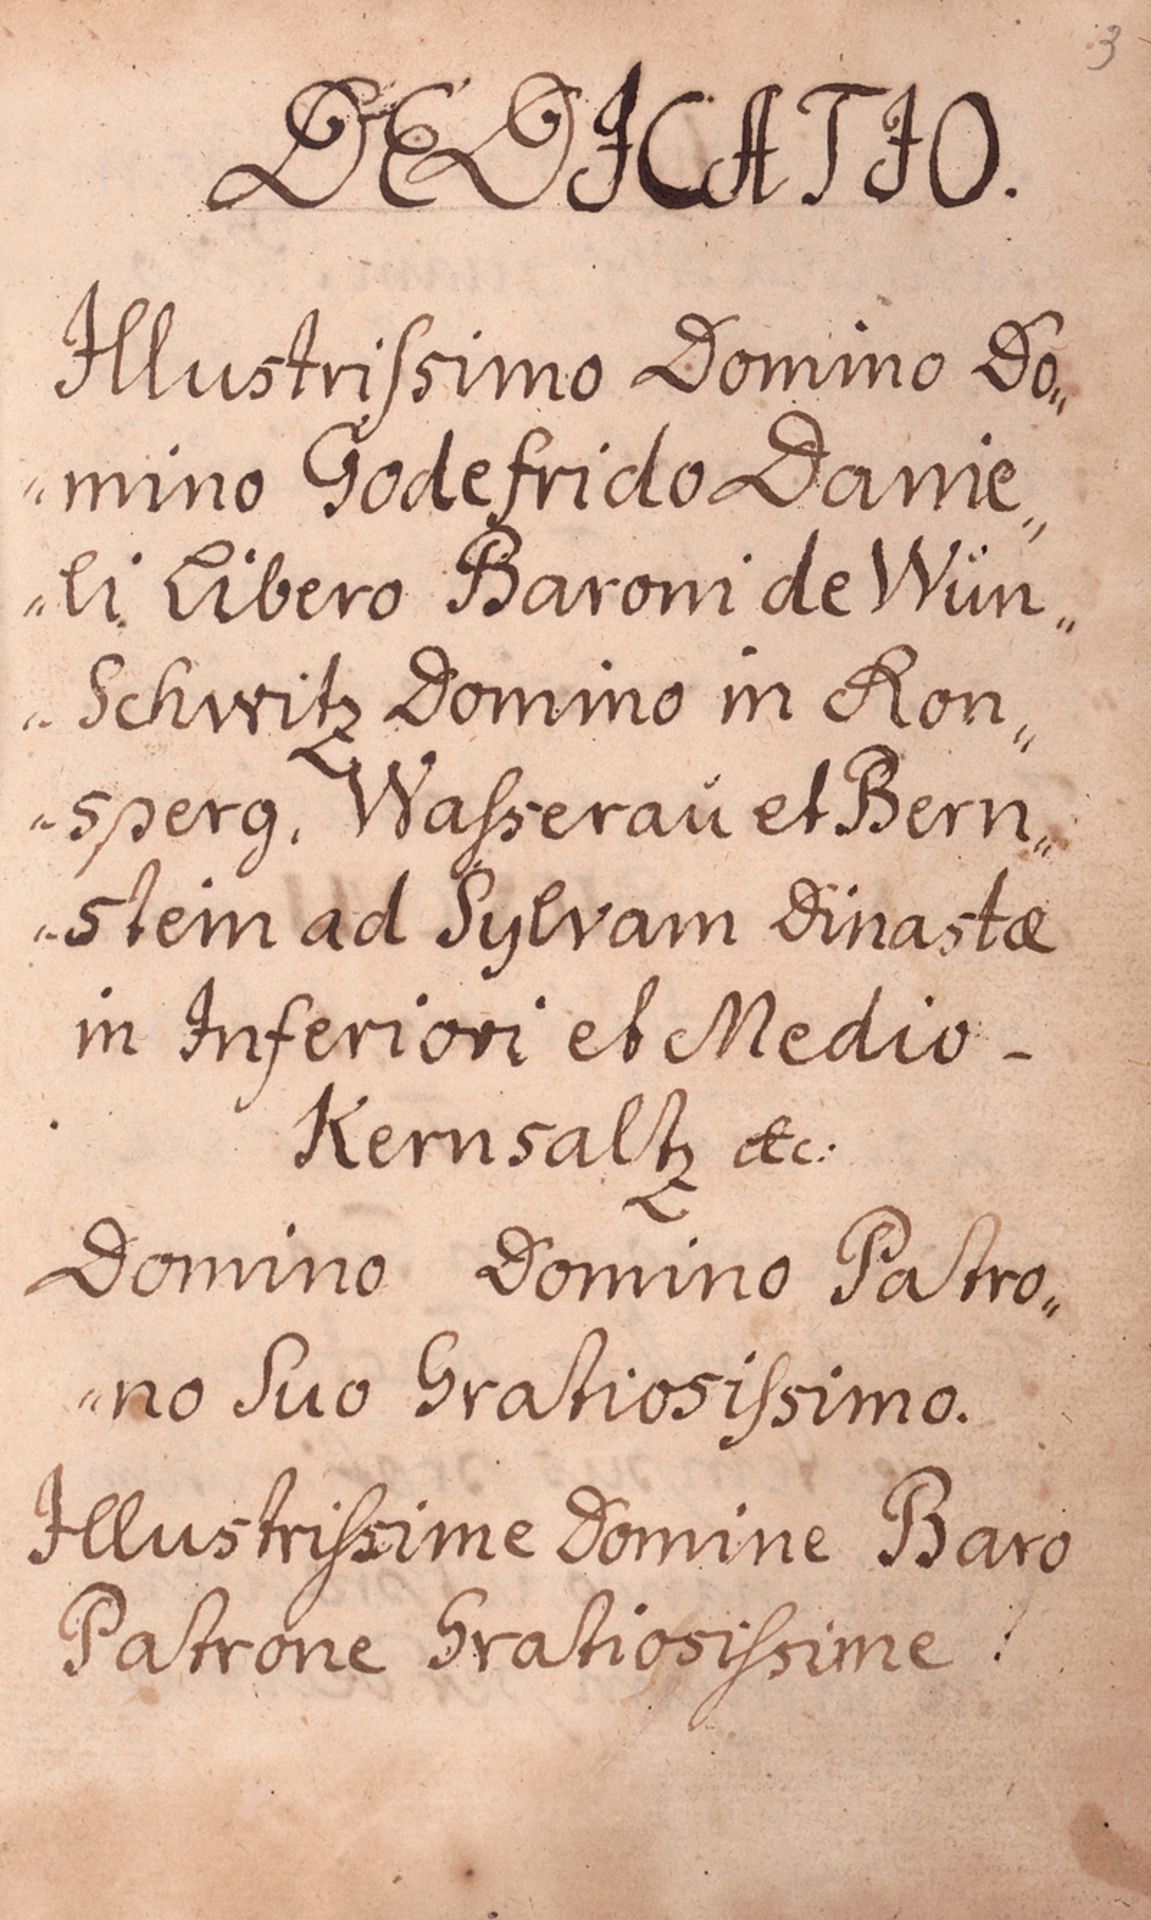 3
DEDICATIO.
Illustriſsimo Domino Do„
„mino Godefrido Danie„
„li Libero Baroni de Wün„
„Schwitz Domino in Ron„
„sperg, Waſserau et Bern„
„stein ad Sylvam Dinastæ
in Inferiori et Medio -
Kernsaltz etc:
Domino Domino Patro„
„no Suo Gratiosiſsimo.
Illustriſsime Domine Baro
Patrone Gratiosiſsime !